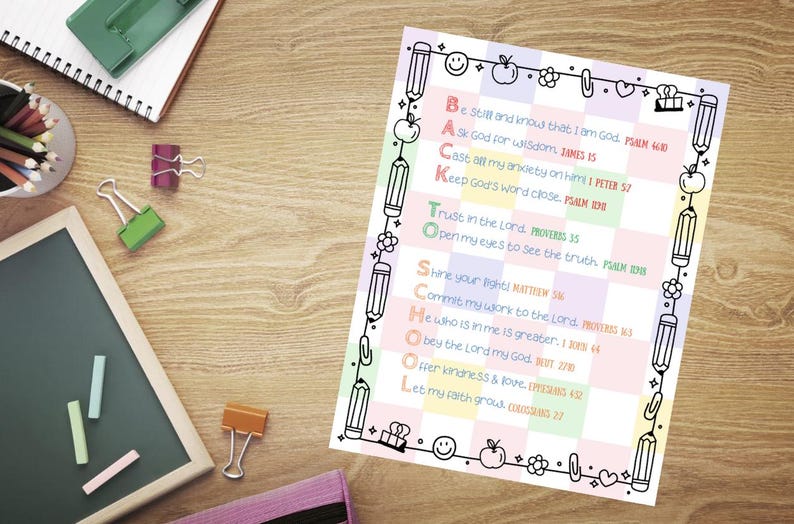 Be still and know that I am God. PSALM 46:10
Ask God for wisdom. JAMES 1:5
Cast all my anxiety on him! 1 PETER 5:7
Keep God's Word close. PSALM 119:11
Trust in the Lord. PROVERBS 3:5
Open my eyes to see the truth. PSALM 119:18
Shine your light! MATTHEW 5:16
Commit my work to the Lord. PROVERBS 16:3
He who is in me is greater. 1 JOHN 4:4
Obey the Lord my God. DEUT. 27:10
Offer kindness & love. EPHESIANS 4:32
Let my faith grow. COLOSSIANS 2:7